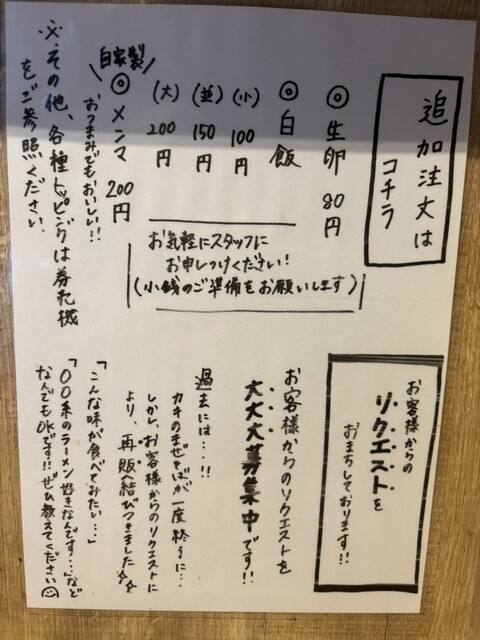 追加注文は
コチラ
◎生卵 80円
◎白飯
(小) 100円
(並) 150円
(大) 200円
自家製
◎メンマ 200円
おつまみでもおいしい!!
※その他、各種トッピングは券売機
をご参照ください。
お気軽にスタッフに
お申しつけください!
(小銭のご準備をお願いします)
お客様からの
リクエストを
おまちしております!!
お客様からのリクエストを
大大大募集中です!!
過去には…!!
カキのまぜそばが一度終うに…
しかし、お客様からのリクエストに
より、再販へ結びつきました☆☆
「こんな味が食べてみたい…」
「〇〇系のラーメン好きなんです…」など
なんでもOKです!!ぜひ教えてください☺